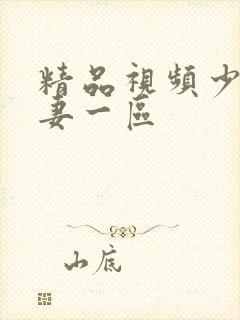 精品視頻少
妻一區
山底